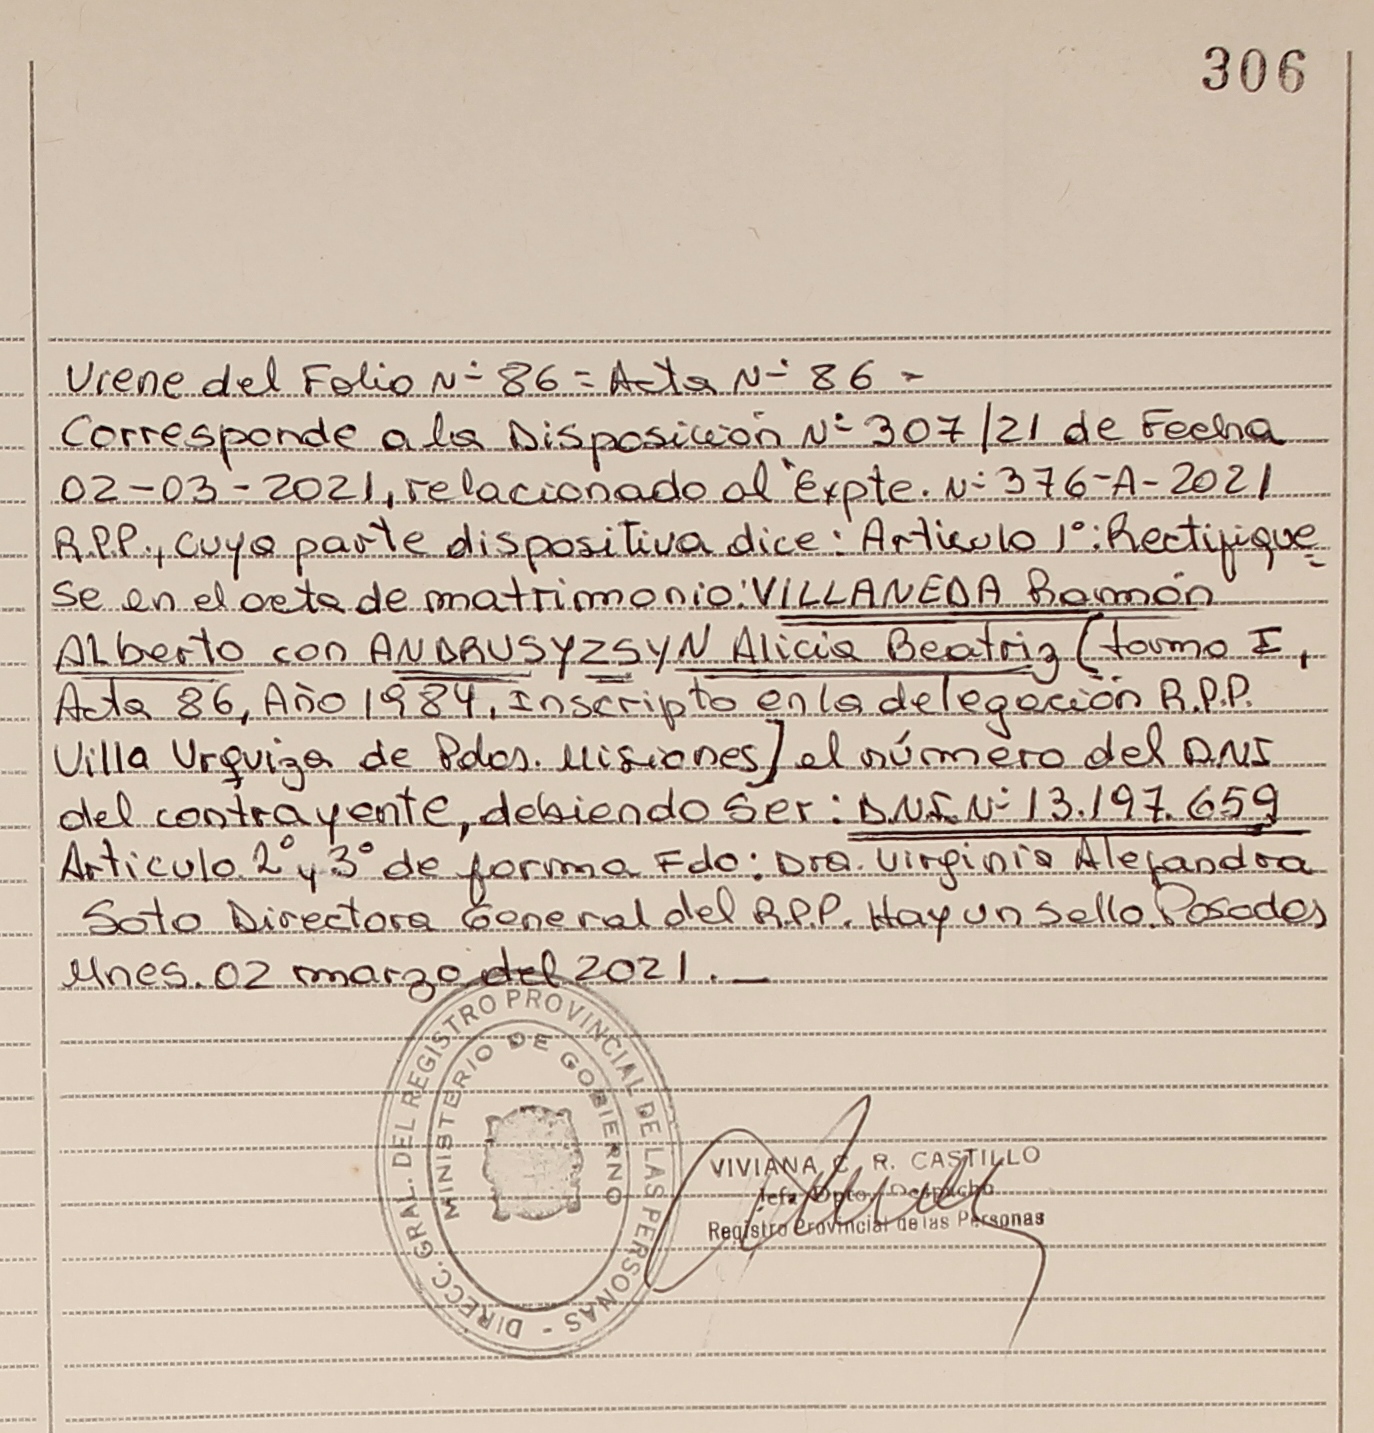 306
Viene del Folio Nº 86 = Acta Nº 86 -
Corresponde a la Disposición Nº 307/21 de Fecha
02-03-2021, relacionado al Expte. Nº 376-A-2021
R.P.P., cuya parte dispositiva dice: Articulo 1º: Rectifique
se en el acta de matrimonio: VILLANEDA Ramón
Alberto con ANDRUSYZSYN Alicia Beatriz (tomo I,
Acta 86, Año 1984, Inscripto en la delegación R.P.P.
Villa Urquiza de Pdas. Misiones] el número del DNI
del contrayente, debiendo ser: D.N.I. Nº 13.197.659
Articulo 2º y 3º de forma Fdo: Dra. Virginia Alejandra
Soto Directora General del R.P.P. Hay un sello. Posadas
Mnes. 02 marzo del 2021. —
DIRECC. GRAL. DEL REGISTRO PROVINCIAL DE LAS PERSONAS -
MINISTERIO DE GOBIERNO
VIVIANA C. R. CASTILLO
Jefa Dpto. Despacho
Registro Provincial de las Personas